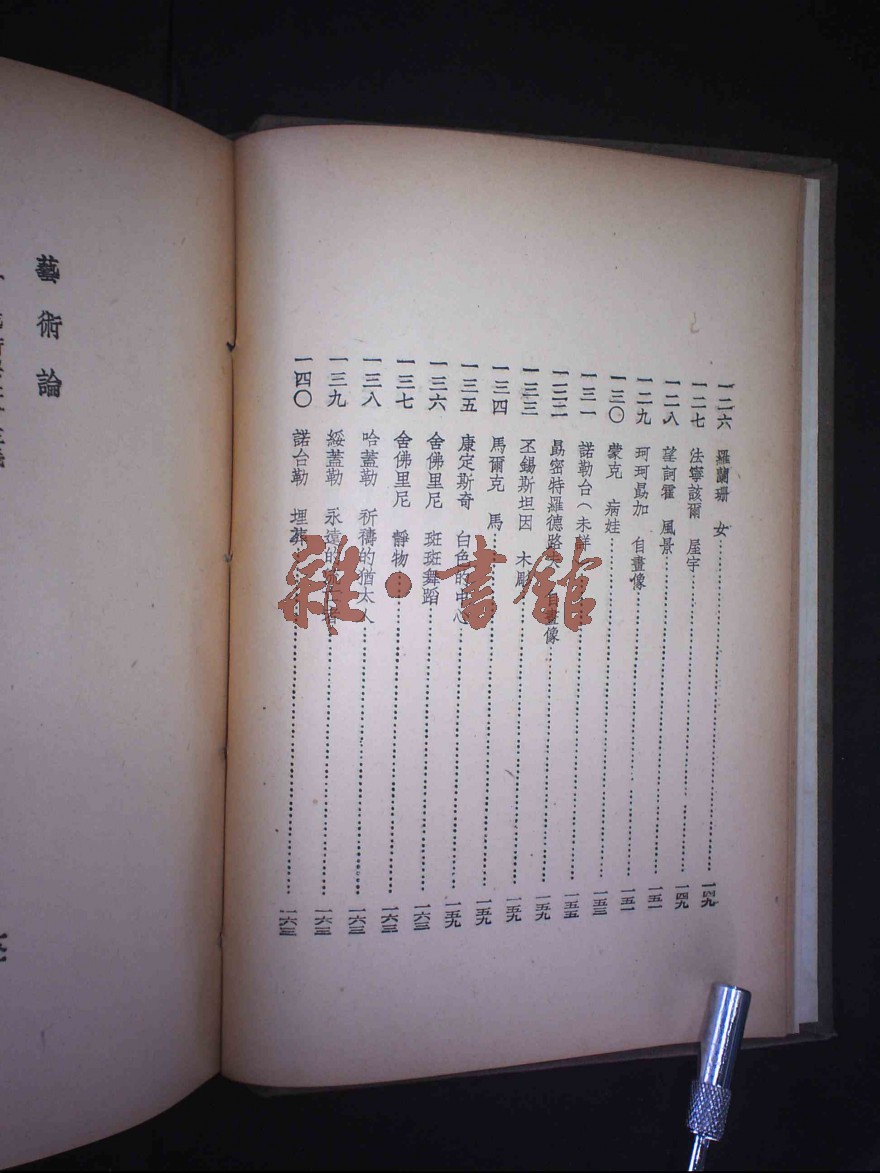 一二六 羅蘭珊 女……一四九
一二七 法寧該爾 屋宇……一四九
一二八 望訶霍 風景……一五一
一二九 珂珂勗加 自畫像……一五一
一三〇 蒙克 病娃……一五三
一三一 諾勒台(未詳……一五五
一三二 勗密特羅德路夫 自畫像……一五九
一三三 丕錫斯坦因 木彫……一五九
一三四 馬爾克 馬……一五九
一三五 康定斯奇 白色的中心……一五九
一三六 舍佛里尼 斑斑舞蹈……一六三
一三七 舍佛里尼 靜物……一六三
一三八 哈蓋勒 祈禱的猶太人……一六三
一三九 綏蓋勒 永遠的……一六三
一四〇 諾台勒 埋葬……一六三
藝術論
雜·書館